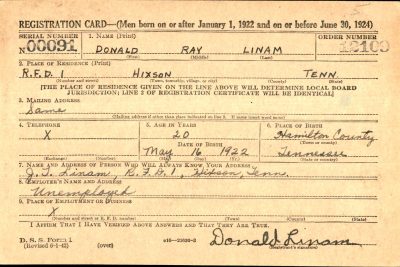 REGISTRATION CARD—(Men born on or after January 1, 1922 and on or before June 30, 1924)
SERIAL NUMBER 1. NAME (Print) ORDER NUMBER
00091 DONALD RAY LINAM 12109
(First) (Middle) (Last)
2. PLACE OF RESIDENCE (Print)
R.F.D. 1 HIXSON TENN.
(Number and street) (Town, township, village, or city) (County) (State)
[THE PLACE OF RESIDENCE GIVEN ON THE LINE ABOVE WILL DETERMINE LOCAL BOARD
JURISDICTION; LINE 2 OF REGISTRATION CERTIFICATE WILL BE IDENTICAL]
3. MAILING ADDRESS
Same
(Mailing address if other than place indicated on line 2. If same insert word same)
4. TELEPHONE 5. AGE IN YEARS 6. PLACE OF BIRTH
X 20 Hamilton County
DATE OF BIRTH (Town or county)
May 16 1922 Tennessee
(Exchange) (Number) (Mo.) (Day) (Yr.) (State or country)
7. NAME AND ADDRESS OF PERSON WHO WILL ALWAYS KNOW YOUR ADDRESS
Linam, R.F.D. 1, Hixson, Tenn.
8. EMPLOYER'S NAME AND ADDRESS
Unemployed
9. PLACE OF EMPLOYMENT OR BUSINESS
X
(Number and street or R. F. D. number) (Town) (County) (State)
I AFFIRM THAT I HAVE VERIFIED ABOVE ANSWERS AND THAT THEY ARE TRUE.
D. S. S. Form 1
(Revised 6-9-42) (over) Donald Linam
(Registrant's signature)